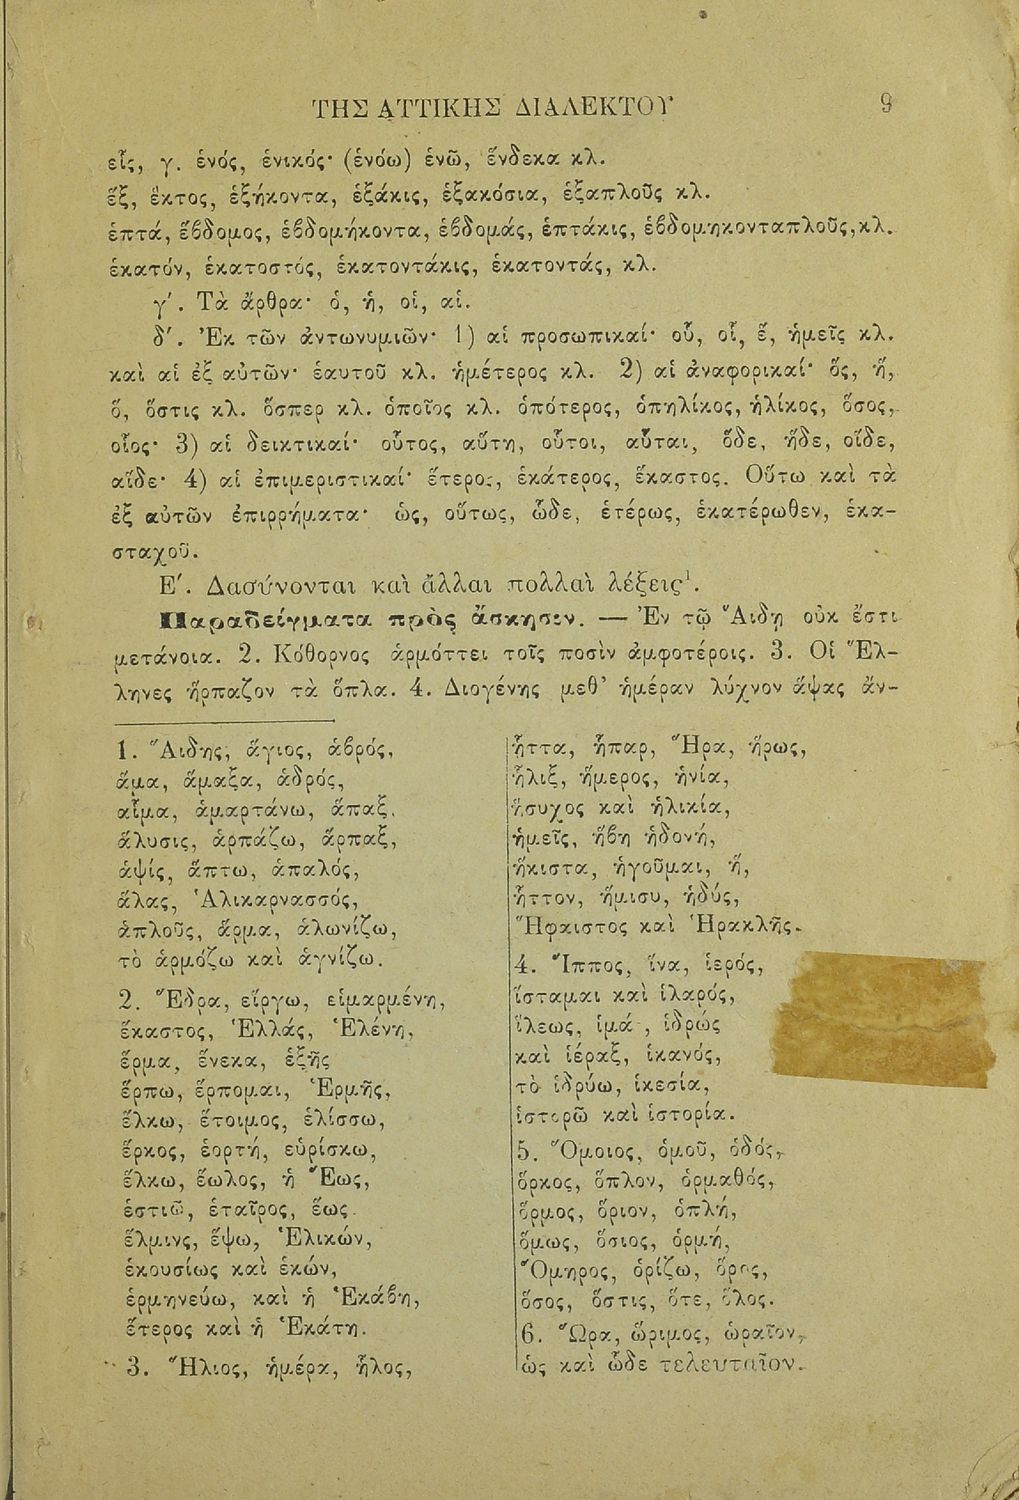 ΤΗΣ ΑΤΤΙΚΗΣ ΔΙΑΛΕΚΤΟΥ 9
εἷς, γ. ἑνός, ἑνικός· (ἑνόω) ἑνῶ, ἕνδεκα κλ.
ἕξ, ἕκτος, ἑξήκοντα, ἑξάκις, ἑξακόσια, ἑξαπλοῦς κλ.
ἑπτά, ἕβδομος, ἑβδομήκοντα, ἑβδομάς, ἑπτάκις, ἑβδομηκονταπλοῦς, κλ.
ἑκατόν, ἑκατοστός, ἑκατοντάκις, ἑκατοντάς, κλ.
γ΄. Τὰ ἄρθρα· ὁ, ἡ, οἱ, αἱ.
δ΄. Ἐκ τῶν ἀντωνυμιῶν· 1) αἱ προσωπικαί· οὗ, οἷ, ἕ, ἡμεῖς κλ.
καὶ αἱ ἐξ αὐτῶν· ἑαυτοῦ κλ. ἡμέτερος κλ. 2) αἱ ἀναφορικαί· ὅς, ἥ,
ὅ, ὅστις κλ. ὅσπερ κλ. ὁποῖος κλ. ὁπότερος, ὁπηλίκος, ἡλίκος, ὅσος,
οἷος· 3) αἱ δεικτικαί· οὗτος, αὕτη, οὗτοι, αὗται, ὅδε, ἥδε, οἵδε,
αἵδε· 4) αἱ ἐπιμεριστικαί· ἕτερος, ἑκάτερος, ἕκαστος. Οὕτω καὶ τὰ
ἐξ αὐτῶν ἐπιρρήματα· ὡς, οὕτως, ὧδε, ἑτέρως, ἑκατέρωθεν, ἑκα-
σταχοῦ.
Ε΄. Δασύνονται καὶ ἄλλαι πολλαὶ λέξεις¹.
Παραδείγματα πρὸς ἄσκησιν. — Ἐν τῷ Ἅιδῃ οὐκ ἔστι
μετάνοια. 2. Κόθορνος ἁρμόττει τοῖς ποσὶν ἀμφοτέροις. 3. Οἱ Ἕλ-
ληνες ἥρπαζον τὰ ὅπλα. 4. Διογένης μεθ' ἡμέραν λύχνον ἅψας ἀν-
1. Ἅιδης, ἅγιος, ἁβρός,
ἅμα, ἅμαξα, ἁδρός,
αἷμα, ἁμαρτάνω, ἅπαξ,
ἅλυσις, ἁρπάζω, ἅρπαξ,
ἁψίς, ἅπτω, ἁπαλός,
ἅλας, Ἁλικαρνασσός,
ἁπλοῦς, ἅρμα, ἁλωνίζω,
τὸ ἁρμόζω καὶ ἁγνίζω.
2. Ἕδρα, εἵργω, εἱμαρμένη,
ἕκαστος, Ἑλλάς, Ἑλένη,
ἕρμα, ἕνεκα, ἑξῆς
ἕρπω, ἕρπομαι, Ἑρμῆς,
ἕλκω, ἕτοιμος, ἑλίσσω,
ἕρκος, ἑορτή, εὑρίσκω,
ἕλκω, ἕωλος, ἡ Ἕως,
ἑστιῶ, ἑταῖρος, ἕως.
ἕλμινς, ἕψω, Ἑλικών,
ἑκουσίως καὶ ἑκών,
ἑρμηνεύω, καὶ ἡ Ἑκάβη,
ἕτερος καὶ ἡ Ἑκάτη.
3. Ἥλιος, ἡμέρα, ἧλος,
ἧττα, ἧπαρ, Ἥρα, ἥρως,
ἧλιξ, ἥμερος, ἡνία,
ἥσυχος καὶ ἡλικία,
ἡμεῖς, ἥβη ἡδονή,
ἥκιστα, ἡγοῦμαι, ἥ,
ἧττον, ἥμισυ, ἡδύς,
Ἥφαιστος καὶ Ἡρακλῆς.
4. Ἵππος, ἵνα, ἱερός,
ἵσταμαι καὶ ἱλαρός,
ἵλεως, ἱμά, ἱδρώς
καὶ ἱέραξ, ἱκανός,
τὸ ἱδρύω, ἱκεσία,
ἱστορῶ καὶ ἱστορία.
5. Ὅμοιος, ὁμοῦ, ὁδός,
ὅρκος, ὅπλον, ὁρμαθός,
ὅρμος, ὅριον, ὁπλή,
ὅμως, ὅσιος, ὁρμή,
Ὅμηρος, ὁρίζω, ὅρος,
ὅσος, ὅστις, ὅτε, ὅλος.
6. Ὥρα, ὥριμος, ὡραῖον,
ὡς καὶ ὧδε τελευταῖον.